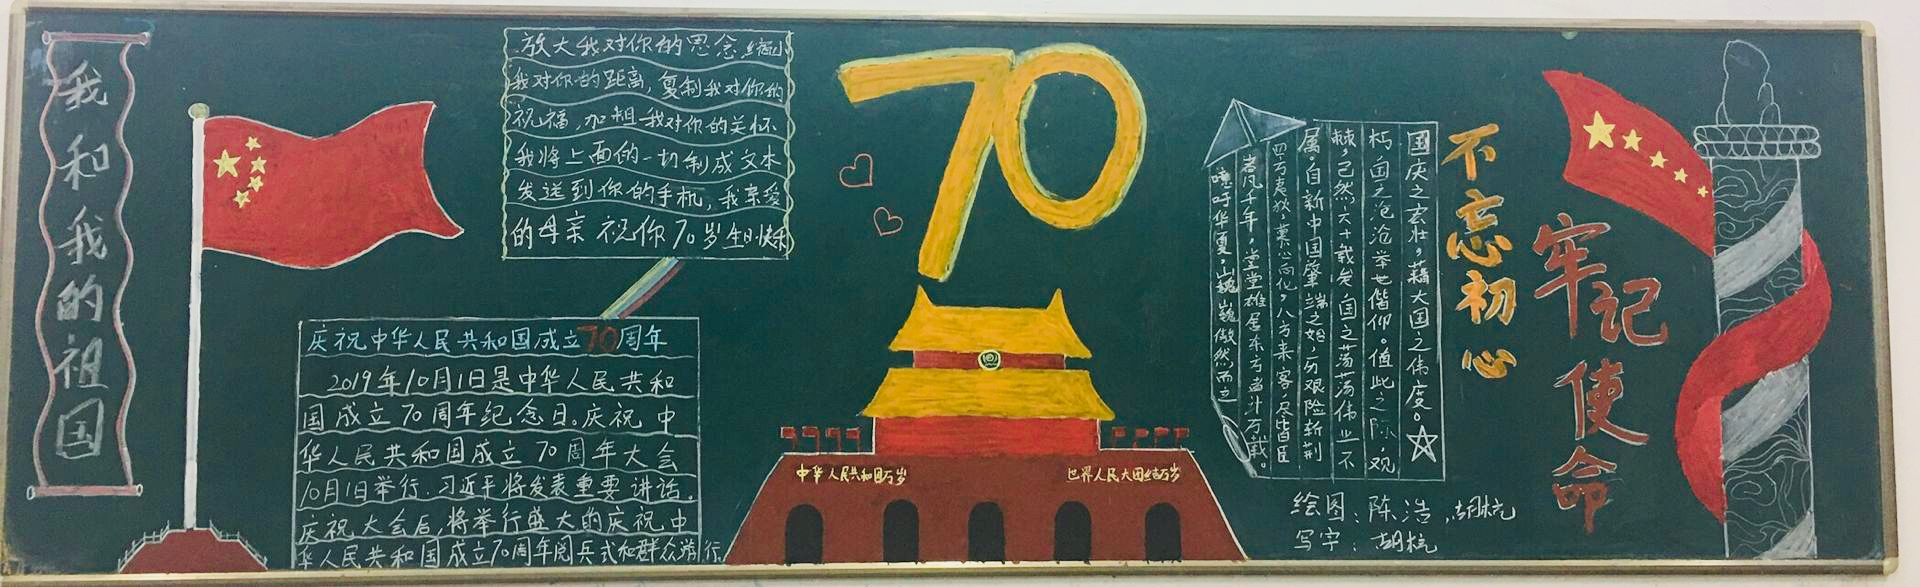 我和我的祖国
放大我对你的思念缩小
我对你的距离,复制我对你的
祝福,加粗我对你的关怀
我将上面的一切制成文本
发送到你的手机,我亲爱
的母亲 祝你70岁生日快乐
庆祝中华人民共和国成立70周年
2019年10月1日是中华人民共和
国成立70周年纪念日。庆祝中
华人民共和国成立70周年大会
10月1日举行.习近平将发表重要讲话.
庆祝大会后,将举行盛大的庆祝中
华人民共和国成立70周年阅兵式和群众游行
70
中华人民共和国万岁
世界人民大团结万岁
国庆之衷壮,藉大国之伟度。
朽自之沧沧举世偕仰。值此之际,观
棘,已然六十载矣自之荡荡伟业不
属。自新中国肇端之始,历艰险斩荆
四方夷狄,禀心向化,八方来客,尽皆臣
春风十年,堂堂雄居东方当斗万载。
噫吁华夏,山巍巍傲然而立
不忘初心
牢记使命
绘图:陈浩,胡杭
写字:胡杭